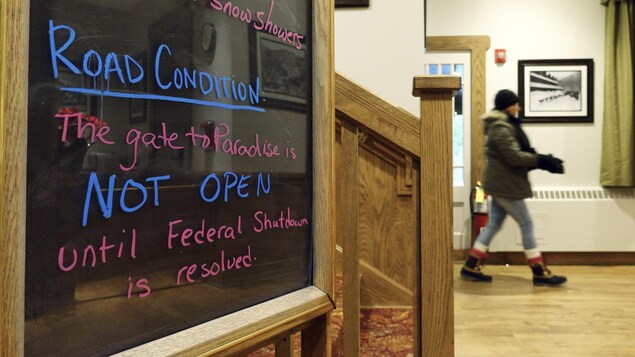 Snowshowers
ROAD CONDITION.
The gate to Paradise is
NOT OPEN
until Federal Shutdown
is resolved.